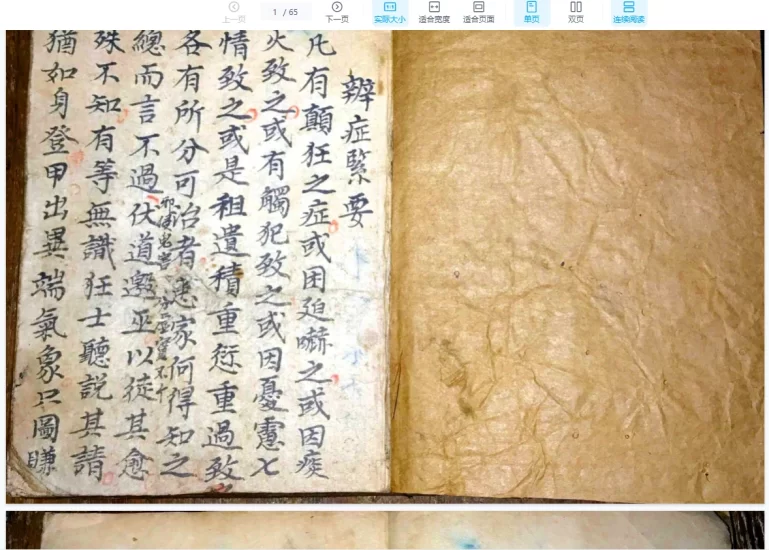 上一页
1 / 65
下一页
实际大小
适合宽度
适合页面
单页
双页
连续阅读
辨症緊要
凡有顛狂之症或因廹嚇之或因痰
火致之或有觸犯致之或因憂慮七
情致之或是祖遺積重愆重過致
各有所分可治者患家何得知之
總而言不過伏道邀巫以徒其愈
殊不知有等無識狂士聽說其請
猶如身登甲出異端氣象只圖賺